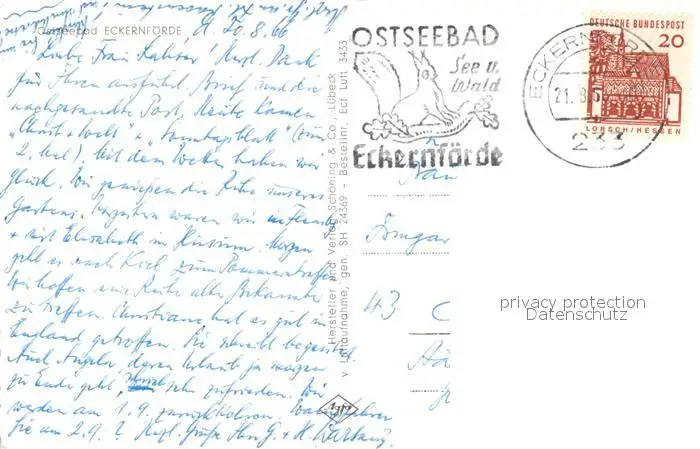 Ostseebad ECKERNFÖRDE
d. 20.8.66
Liebe Frau Labuser! Herzl. Dank
für Ihren ausführl. Brief und die
nachgesandte Post. Heute kamen
„Christ + Welt“ u. „Sonntagsblatt“ (zum
2. mal). Mit dem Wetter haben wir
Glück. Wir genießen die Ruhe unseres
Gartens. Vorgestern waren wir
+ mit Elisabeth in Husum. Morgen
geht es nach Kiel zum Pommerntreffen
Wir hoffen eine Reihe alter Bekannter
zu treffen. Christiane hat es gut in
England getroffen. Sie schreibt begeistert
Auch Angela, deren Urlaub ja morgen
zu Ende geht, sehr zufrieden. Wir
werden am 1.9. zurückkehren. Wann fahren
Sie am 2.9.? Herzl. Grüße Ihre G. + H.
Hersteller und Verlag Schöning & Co., Lübeck
v. Luftaufnahme, gen. SH 24369 - Bestellnr. Ecf Luft 3433
Agfa
OSTSEEBAD
See u.
Wald
Eckernförde
ECKERNFÖRDE
21.8.6
233
DEUTSCHE BUNDESPOST
20
LORSCH/HESSEN
43
privacy protection
Datenschutz